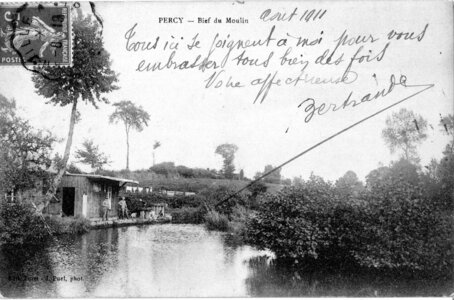 PERCY — Bief du Moulin
Aout 1911
Tous ici se joignent à moi pour vous
embrasser tous bien des fois
Votre affectueuse
Bertrande
POSTES
J. Puel, phot.